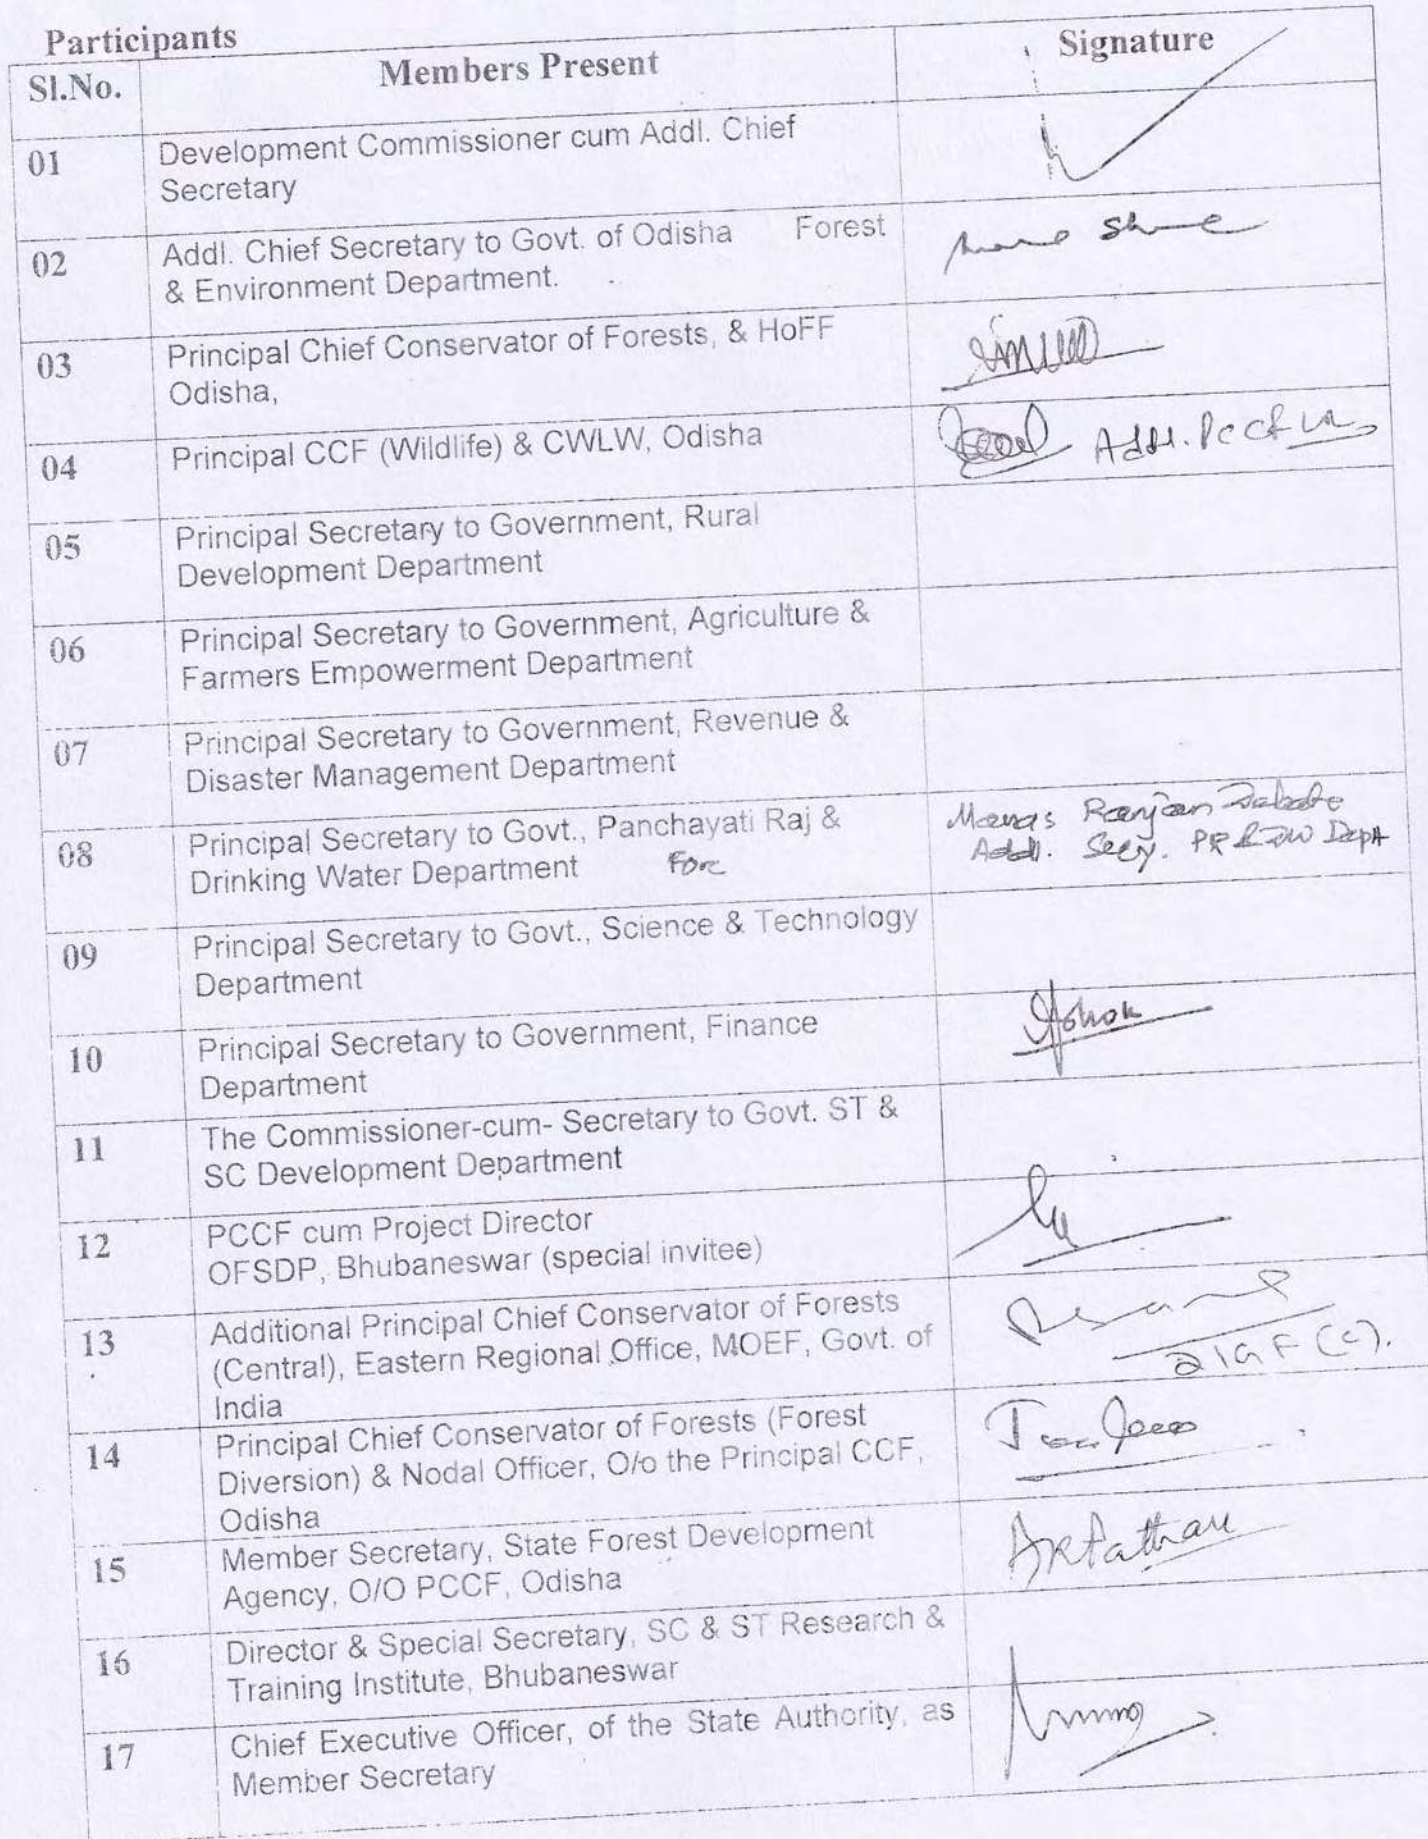 Participants
Sl.No. Members Present Signature
01 Development Commissioner cum Addl. Chief
Secretary
02 Addl. Chief Secretary to Govt. of Odisha Forest
& Environment Department.
03 Principal Chief Conservator of Forests, & HoFF
Odisha,
04 Principal CCF (Wildlife) & CWLW, Odisha Addl. PCCF
05 Principal Secretary to Government, Rural
Development Department
06 Principal Secretary to Government, Agriculture &
Farmers Empowerment Department
07 Principal Secretary to Government, Revenue &
Disaster Management Department
08 Principal Secretary to Govt., Panchayati Raj & Manas Ranjan
Drinking Water Department For Addl. Secy. PR & DW Deptt
09 Principal Secretary to Govt., Science & Technology
Department
10 Principal Secretary to Government, Finance Ashok
Department
11 The Commissioner-cum- Secretary to Govt. ST &
SC Development Department
12 PCCF cum Project Director
OFSDP, Bhubaneswar (special invitee)
13 Additional Principal Chief Conservator of Forests
(Central), Eastern Regional Office, MOEF, Govt. of DIGF (C).
India
14 Principal Chief Conservator of Forests (Forest
Diversion) & Nodal Officer, O/o the Principal CCF,
Odisha
15 Member Secretary, State Forest Development
Agency, O/O PCCF, Odisha
16 Director & Special Secretary, SC & ST Research &
Training Institute, Bhubaneswar
17 Chief Executive Officer, of the State Authority, as
Member Secretary